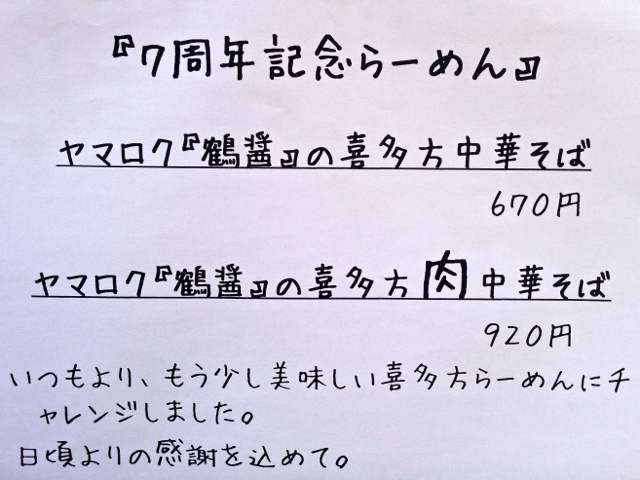 『7周年記念らーめん』
ヤマロク『鶴醬』の喜多方中華そば
670円
ヤマロク『鶴醬』の喜多方肉中華そば
920円
いつもより、もう少し美味しい喜多方らーめんにチ
ャレンジしました。
日頃よりの感謝を込めて。